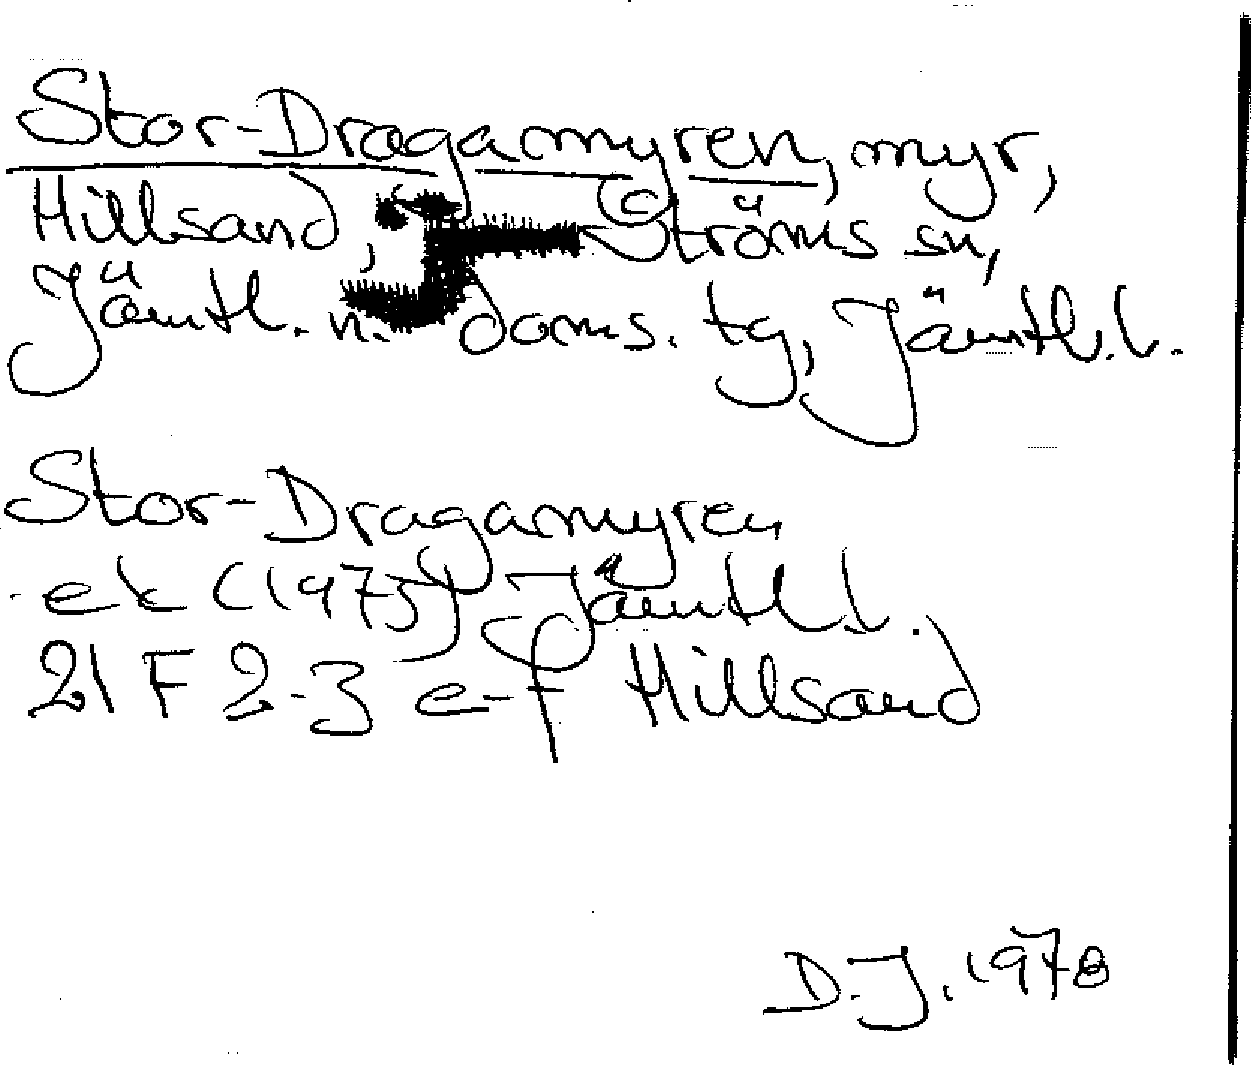 Stor-Dragamyren, myr,
Hillsand, Ströms sn,
Jämtl. n. doms. tg, Jämtl. l.
Stor-Dragamyren
ek (1973) Jämtl l.
21 F 2-3 e-f Hillsand
D.J. 1978